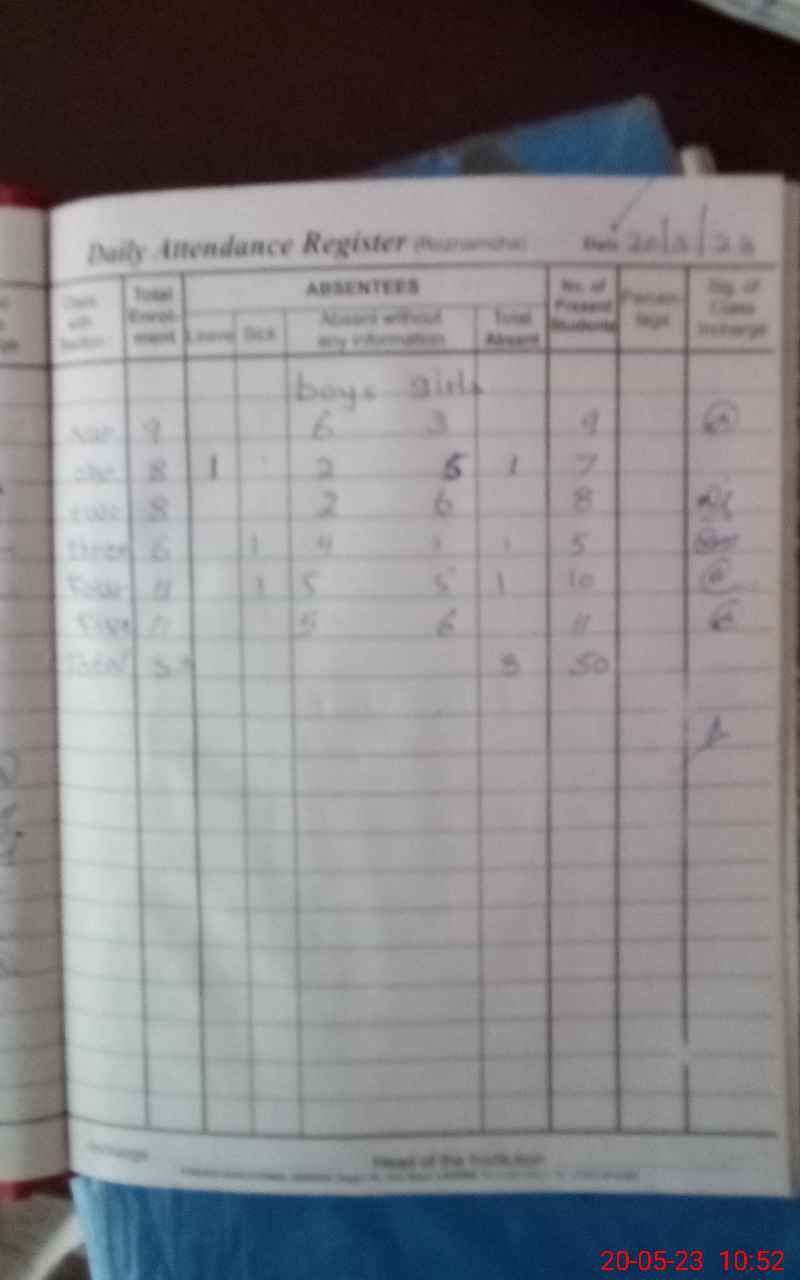 Daily Attendance Register (Roznamcha) Date 20/5/23
Class with Section Total Enrol-ment ABSENTEES No. of Present Students Percen-tage Sig. of Class Incharge
Leave Sick Absent without any information Total Absent
boys girls
Nur 9 6 3 9
one 8 1 2 5 1 7
two 8 2 6 8
three 6 1 4 1 1 5
Four 11 1 5 5 1 10
Five 11 5 6 11
Total 3 50
Head of the Institution
20-05-23 10:52